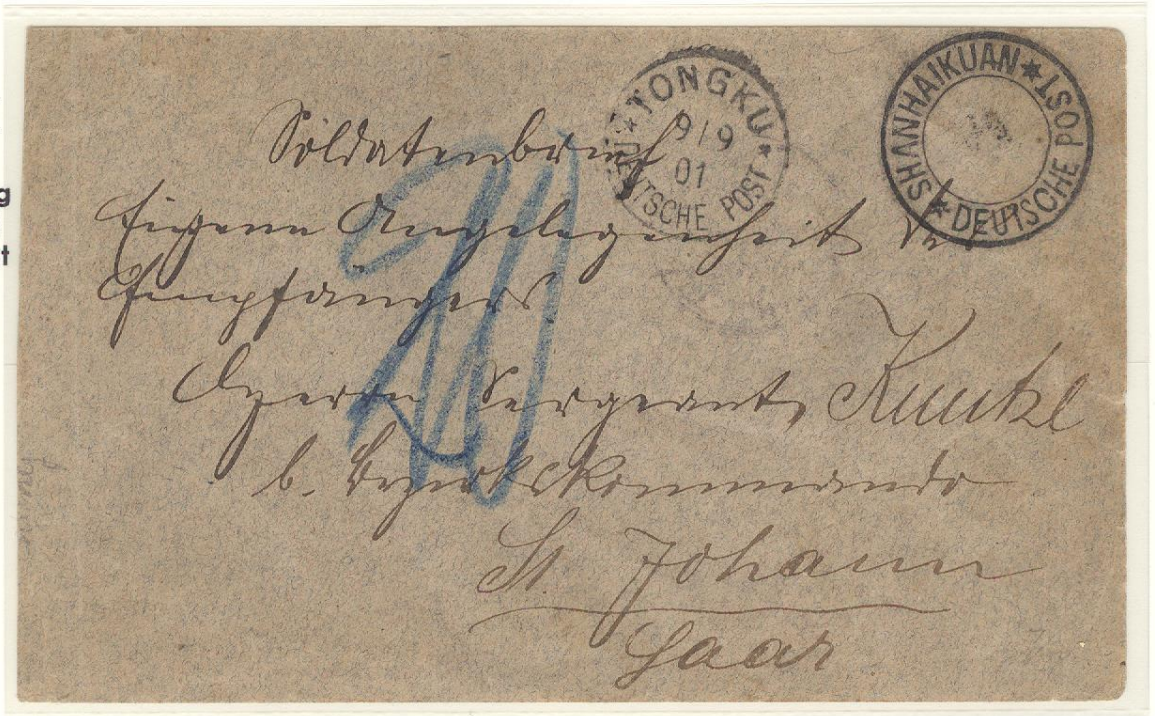 TONGKU
9/9
01
DEUTSCHE POST
SHANHAIKUAN
DEUTSCHE POST
Soldatenbrief
Eigene Angelegenheit des
Empfängers.
Herrn Sergeant Kuntze
b. Bezirkskommando
St. Johann
Saar
20
g
t